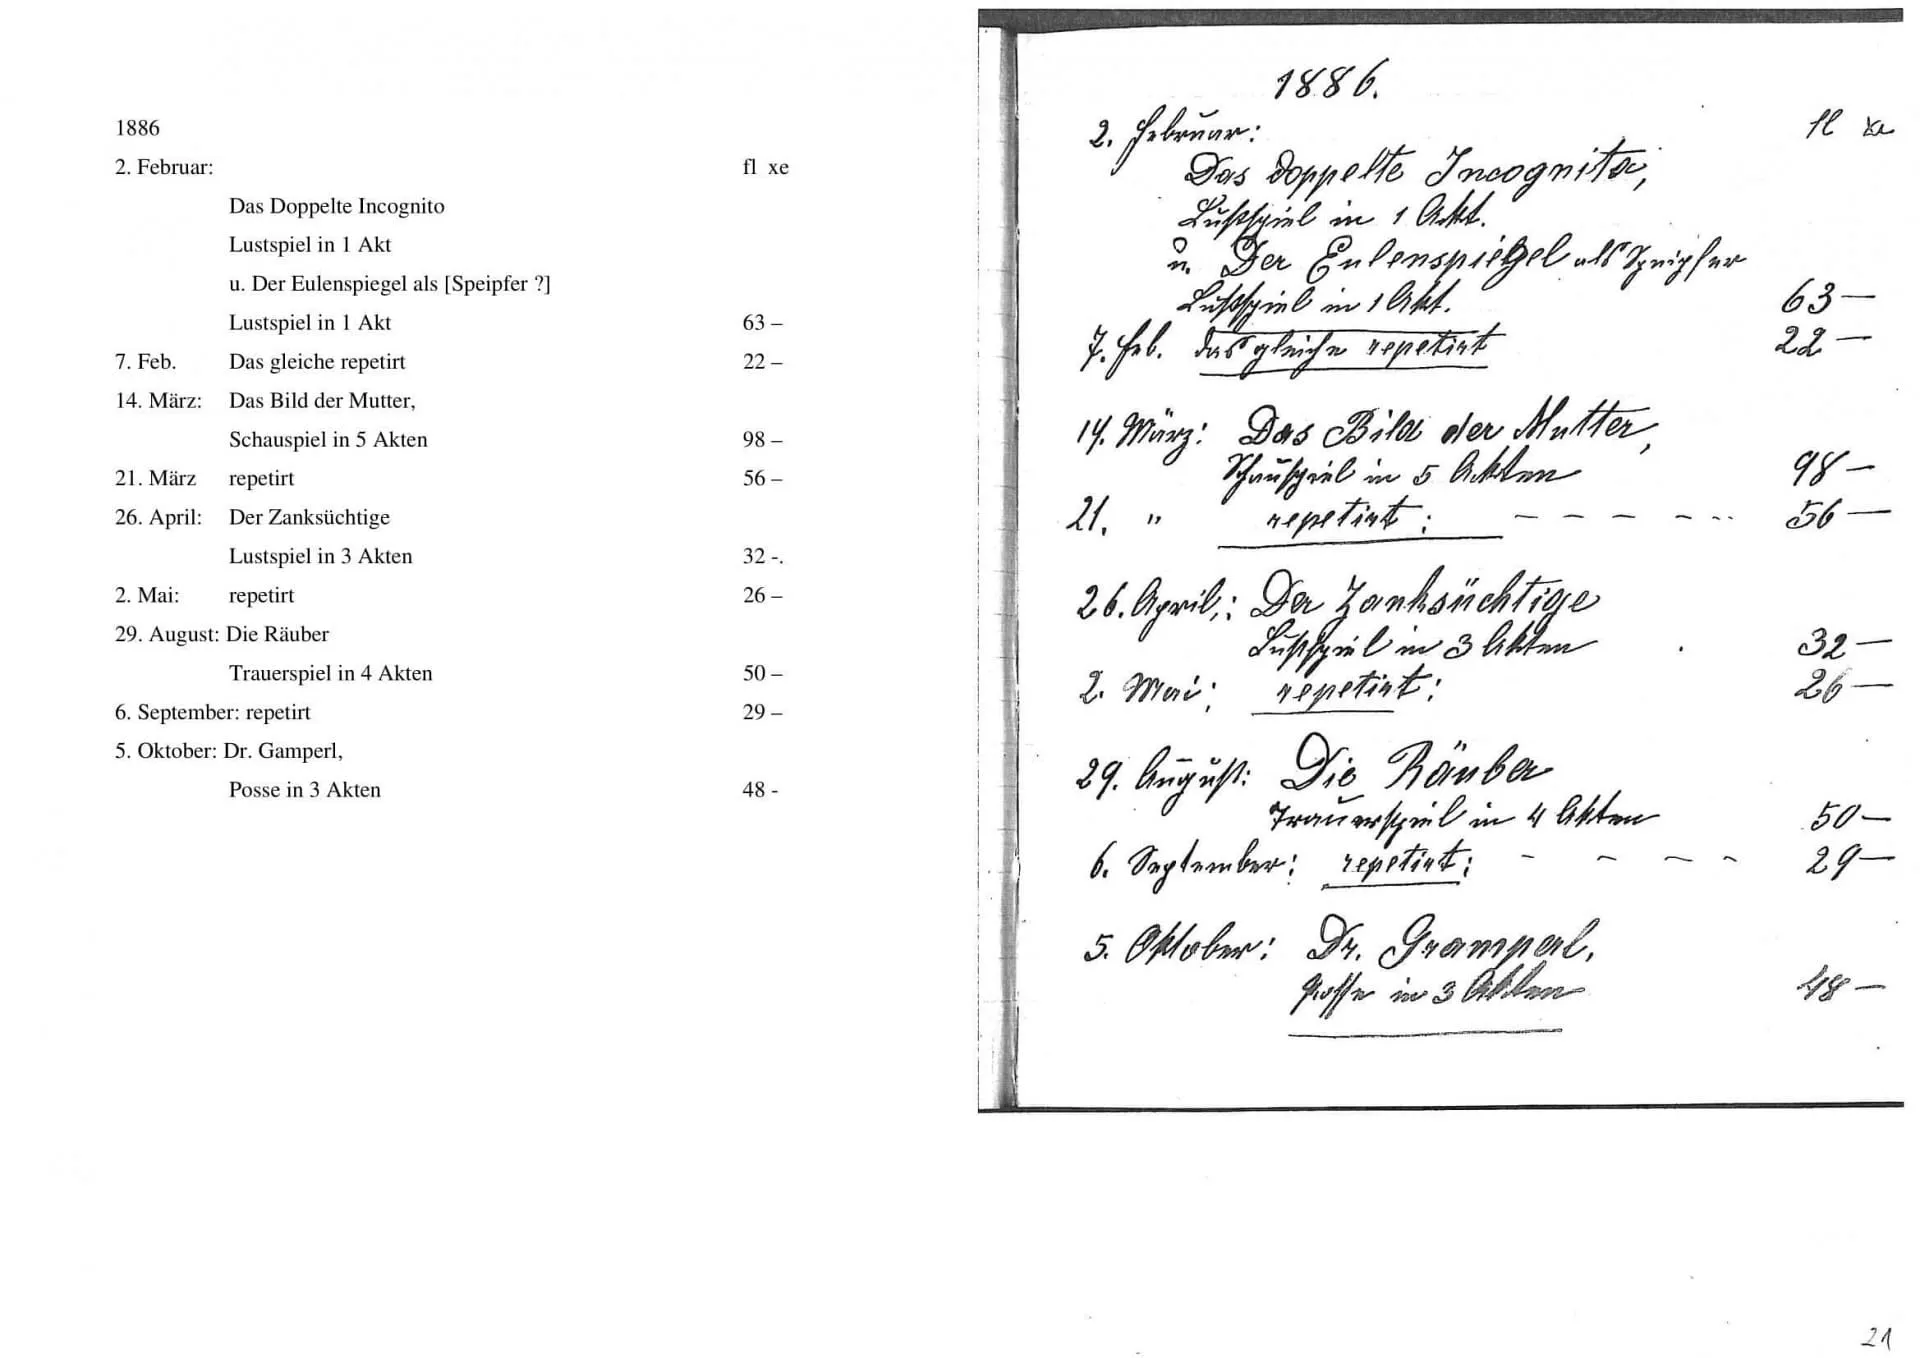 1886
2. Februar: fl xe
Das Doppelte Incognito
Lustspiel in 1 Akt
u. Der Eulenspiegel als [Speipfer ?]
Lustspiel in 1 Akt 63 –
7. Feb. Das gleiche repetirt 22 –
14. März: Das Bild der Mutter,
Schauspiel in 5 Akten 98 –
21. März repetirt 56 –
26. April: Der Zanksüchtige
Lustspiel in 3 Akten 32 -.
2. Mai: repetirt 26 –
29. August: Die Räuber
Trauerspiel in 4 Akten 50 –
6. September: repetirt 29 –
5. Oktober: Dr. Gamperl,
Posse in 3 Akten 48 -
1886.
2. Februar: fl xe
Das Doppelte Incognito,
Lustspiel in 1 Akt.
u. Der Eulenspiegel als
Lustspiel in 1 Akt. 63 —
7. Feb. das gleiche repetirt 22 —
14. März: Das Bild der Mutter,
Schauspiel in 5 Akten 98 —
21. " repetirt: – – – – – -- 56 —
26. April,: Der Zanksüchtige
Lustspiel in 3 Akten 32 —
2. Mai: repetirt: 26 —
29. August: Die Räuber
Trauerspiel in 4 Akten 50 —
6. September: repetirt: – – – – 29 —
5. Oktober: Dr. Gramperl,
Posse in 3 Akten 48 —
21